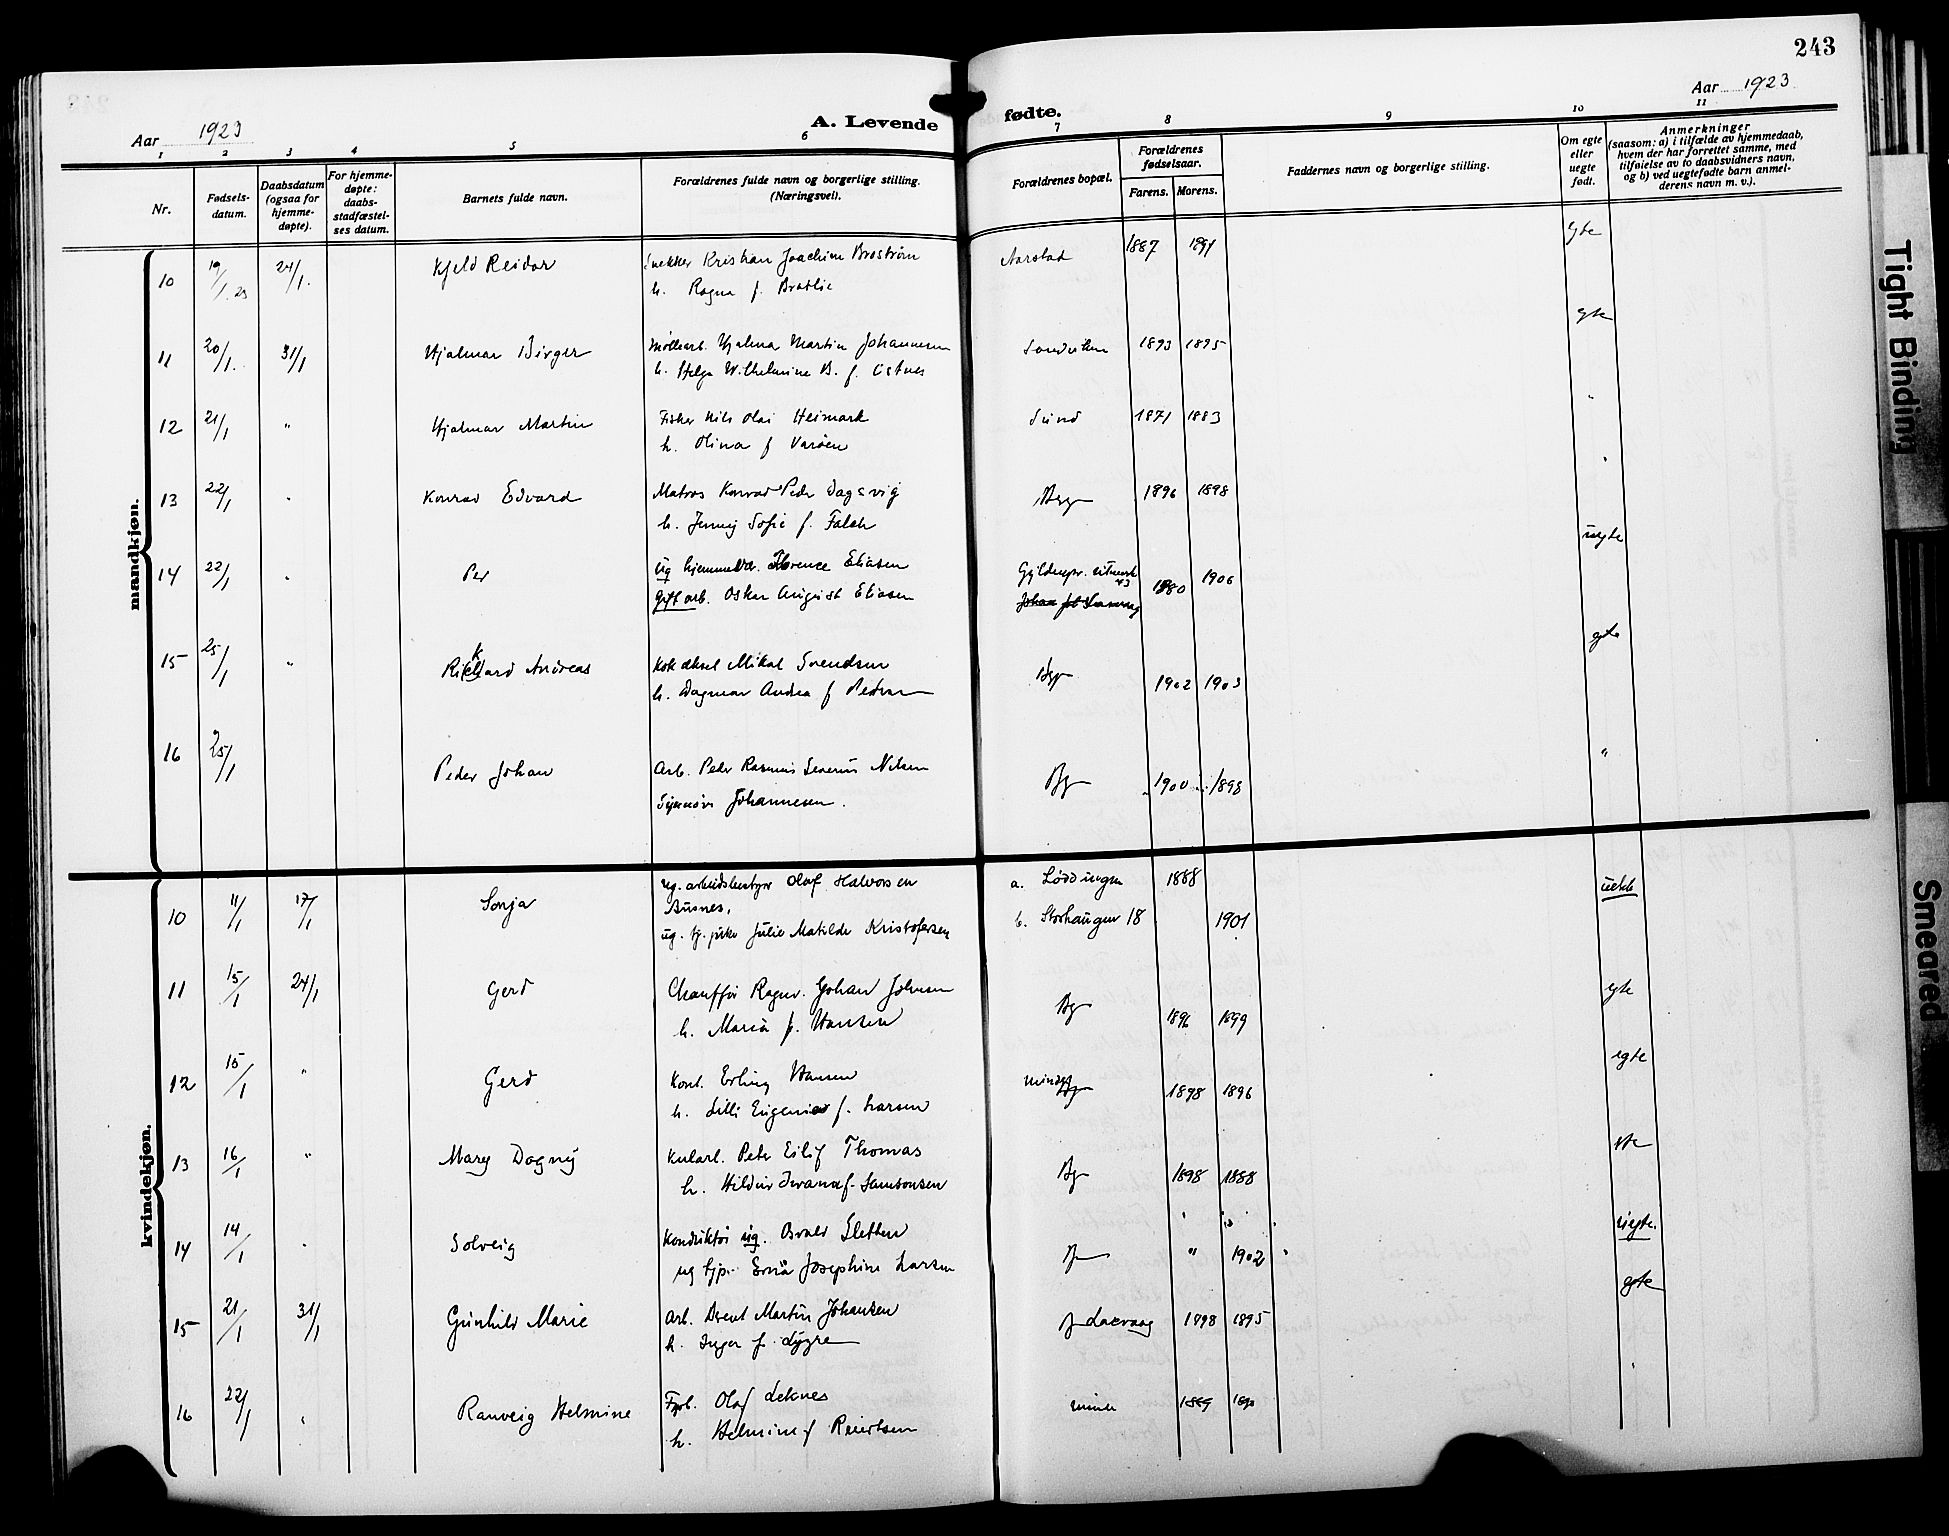 243
Aar 1923
Aar 1923
A. Levende fødte.
1 2 3 4 5 6 7 8 9 10 11
Nr.
Fødsels-
datum.
Daabsdatum
(ogsaa for
hjemme-
døpte).
For hjemme-
døpte:
daabs-
stadfæstel-
ses datum.
Barnets fulde navn.
Forældrenes fulde navn og borgerlige stilling.
(Næringsvei).
Forældrenes bopæl.
Forældrenes
fødselsaar.
Farens. Morens.
Faddernes navn og borgerlige stilling.
Om egte
eller
uegte
født.
Anmerkninger
(saasom: a) i tilfælde av hjemmedaab,
hvem der har forrettet samme, med
tilføielse av to daabsvidners navn,
og b) ved uegtefødte barn anmel-
derens navn m. v.).
mandkjøn.
10 19/1 23 24/1. Kjeld Reidar Snekker Kristian Joachim Broström Aarstad 1887 1891 egte
h. Ragna f. Brattlie
11 20/1. 31/1 Hjalmar Birger Møllearb. Hjalmar Martin Johannesen 1893 1895 egte
h. Helga Wilhelmine B. f. Østnes
12 21/1 " Hjalmar Martin Fisker Nils Olai Heimark Sund 1871 1883 "
h. Olina f Varöen
13 22/1 " Konrad Edvard Matros Konrad Peder Dagsvig Bgn 1896 1898 "
h. Jenny Sofie f. Falch
14 22/1 " Per ug hjemmevær. Florence Eliasen Gyldenpr. 1906 uegte
Gift arb. Oskar August Eliasen 1880
15 25/1 " Rikard Andreas Kok Aksel Mikal Svendsen Bgn 1902 1903 egte
h. Dagmar Andrea f Pedersen
16 25/1 Peder Johan Arb. Peder Rasmus Severin Nilsen Bgn 1900 1898 "
Johannesen.
kvindekjøn.
10 11/1 17/1 Sonja ug. arbeidsbestyrer Olaf Halvorsen a. Lødingen 1888 uekte
Busnes,
ug. tj. pike Julie Matilde Kristofersen b. Storhaugen 18 1901
11 15/1 24/1 Gerd Chauffør Ragnv. Johan Johnsen Bgn 1896 1899 egte
h. Maria f. Hansen
12 15/1 " Gerd Kont. Erling Hansen Minde 1898 1896 egte
h. Lilli Eugenie f. Larsen
13 16/1 " Mary Dagny Kularb. Peter Eilif Thomas Bgn 1898 1888
h. Hildur Iwana f. Samsonsen
14 14/1 " Solveig Konduktør ug. Osvald Sletten " uegte.
ug tjp. Erna Josephine Larsen Bgn " 1902
15 21/1 31/1 Gunhild Marie Arb. Bernt Martin Johansen Laxevaag 1898 1895 egte
h. Inger f. Lygre
16 22/1 " Ranveig Helmine Fyrb. Olaf Leknes Minde 1889 1890 "
h. Helmine f Reiertsen
Tight Binding
Smeared